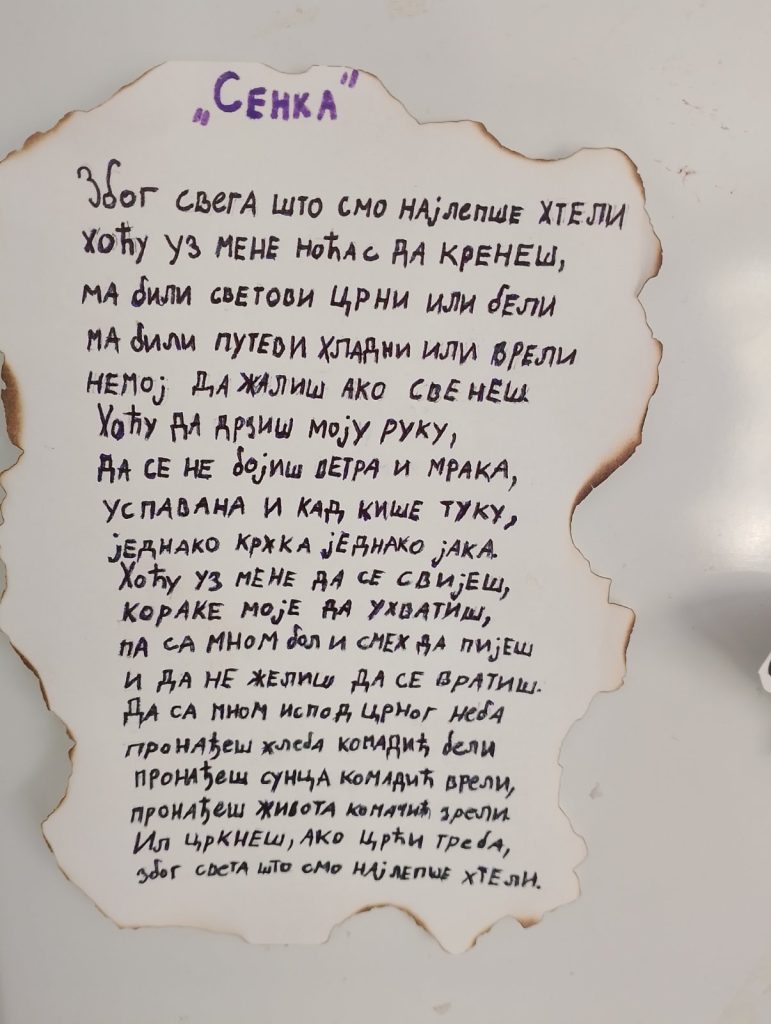 „Сенка”
Због свега што смо најлепше хтели
хоћу уз мене ноћас да кренеш,
ма били светови црни или бели
ма били путеви хладни или врели
немој да жалиш ако свенеш.
Хоћу да држиш моју руку,
да се не бојиш ветра и мрака,
успавана и кад кише туку,
једнако крхка једнако јака.
Хоћу уз мене да се свијеш,
кораке моје да ухватиш,
па са мном бол и смех да пијеш
и да не желиш да се вратиш.
Да са мном испод црног неба
пронађеш хлеба комадић бели
пронађеш сунца комадић врели,
пронађеш живота комачић зрели.
Ил цркнеш, ако црћи треба,
због свега што смо најлепше хтели.